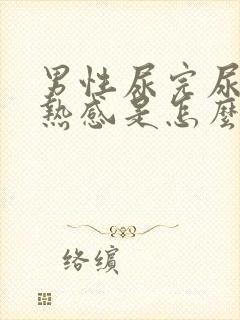 男性尿完尿
熱感是怎麼
络缤